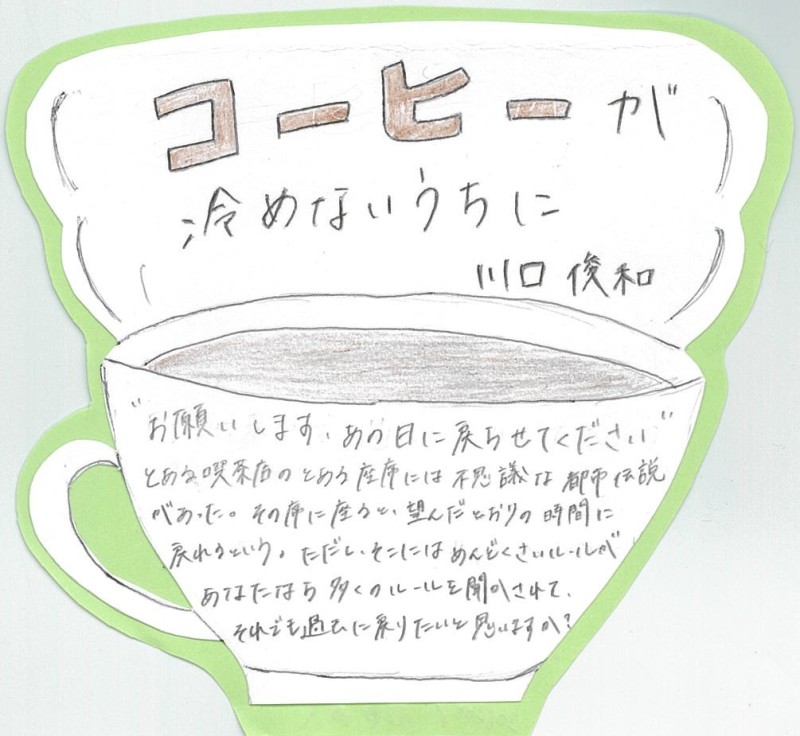 コーヒーが
冷めないうちに
川口 俊和
"お願いします、あの日に戻らせてください"
とある喫茶店のとある座席には不思議な都市伝説
があった。その席に座ると、望んだとおりの時間に
戻れるという。ただし、そこにはめんどくさいルールが
あなたなら多くのルールを聞かされて、
それでも過去に戻りたいと思いますか?